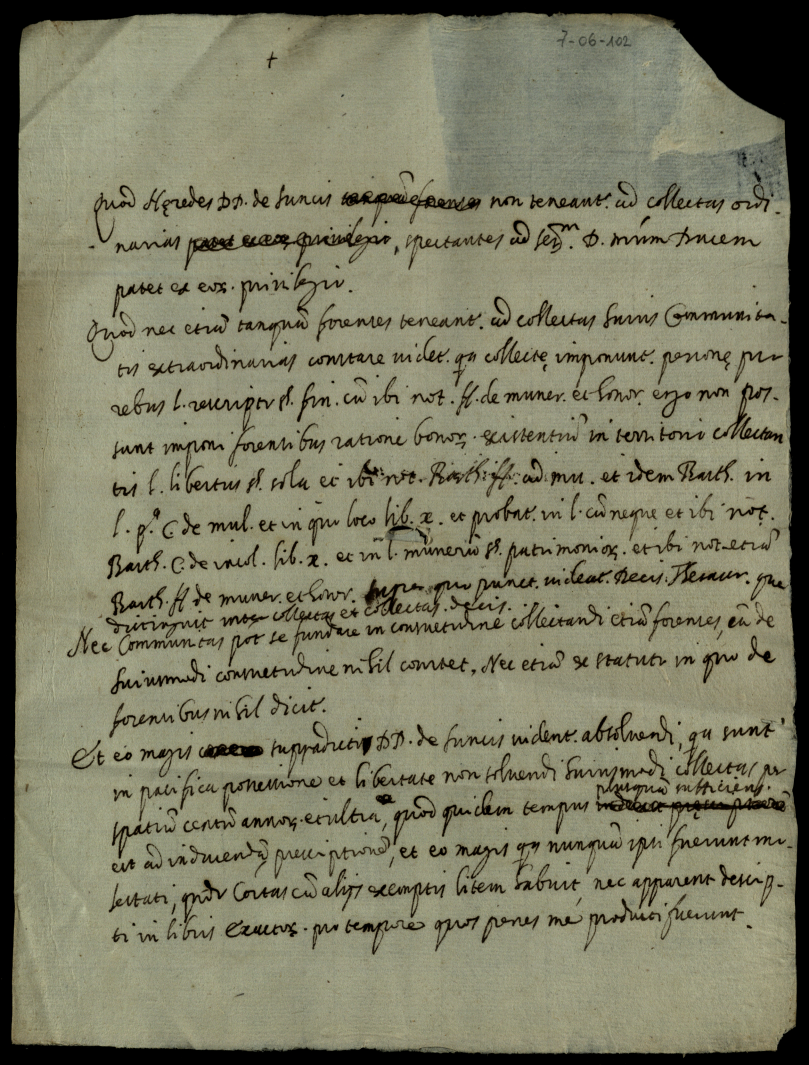 7-06-102
+
Quod Hęredes DD. de Suncis non teneant. ad collectas ordi-
narias patet ex eor. privilegio, spectantes ad Ser.m D. nrum Ducem
patet ex eor. privilegio.
Quod nec etiã tanquã forenses teneant. ad collectas huius Communita-
tis extraordinarias constare videt. qa collectę imponunt. personę pro
rebus l. rescripto §. fin. cũ ibi not. ff. de muner. et honor. ergo non pos-
sunt imponi forensibus ratione bonor. existentiũ in territorio collectan
tis l. libertus §. sola et ibi not. Barth. ff. ad mu. et idem Barth. in
l. p.a C. de mul. et in quo loco lib. x. et probat. in l. cũ neque et ibi not.
Barth. C. de incol. lib. x. et in l. munerũ §. patrimonior. et ibi not. etiã
Barth. ff de muner. et honor. super quo punct. videat. Decis. Thesaur. que
distinguit inter collectas et collectas. decis.
Nec Communitas pot se fundare in consuetudine collectandi etiã forenses, cũ de
huiusmodi consuetudine nihil constet, Nec etiã ex statuto in quo de
forensibus nihil dicit.
Et eo magis suppradicti DD. de Suncis vident. absolvendi, qa sunt
in pacifica possessione et libertate non solvendi huiusmodi collectas per
spatiũ centũ annor. et ultra, quod quidem tempus plusquã sufficiens
est ad inducendã prescriptionẽ, et eo magis qa nunquã ipsi fuerunt mo-
lestati, quãdo Coitas cũ alijs exemptis litem habuit, nec apparent descrip-
ti in libris Exactor. pro tempore quos penes me producti fuerunt.